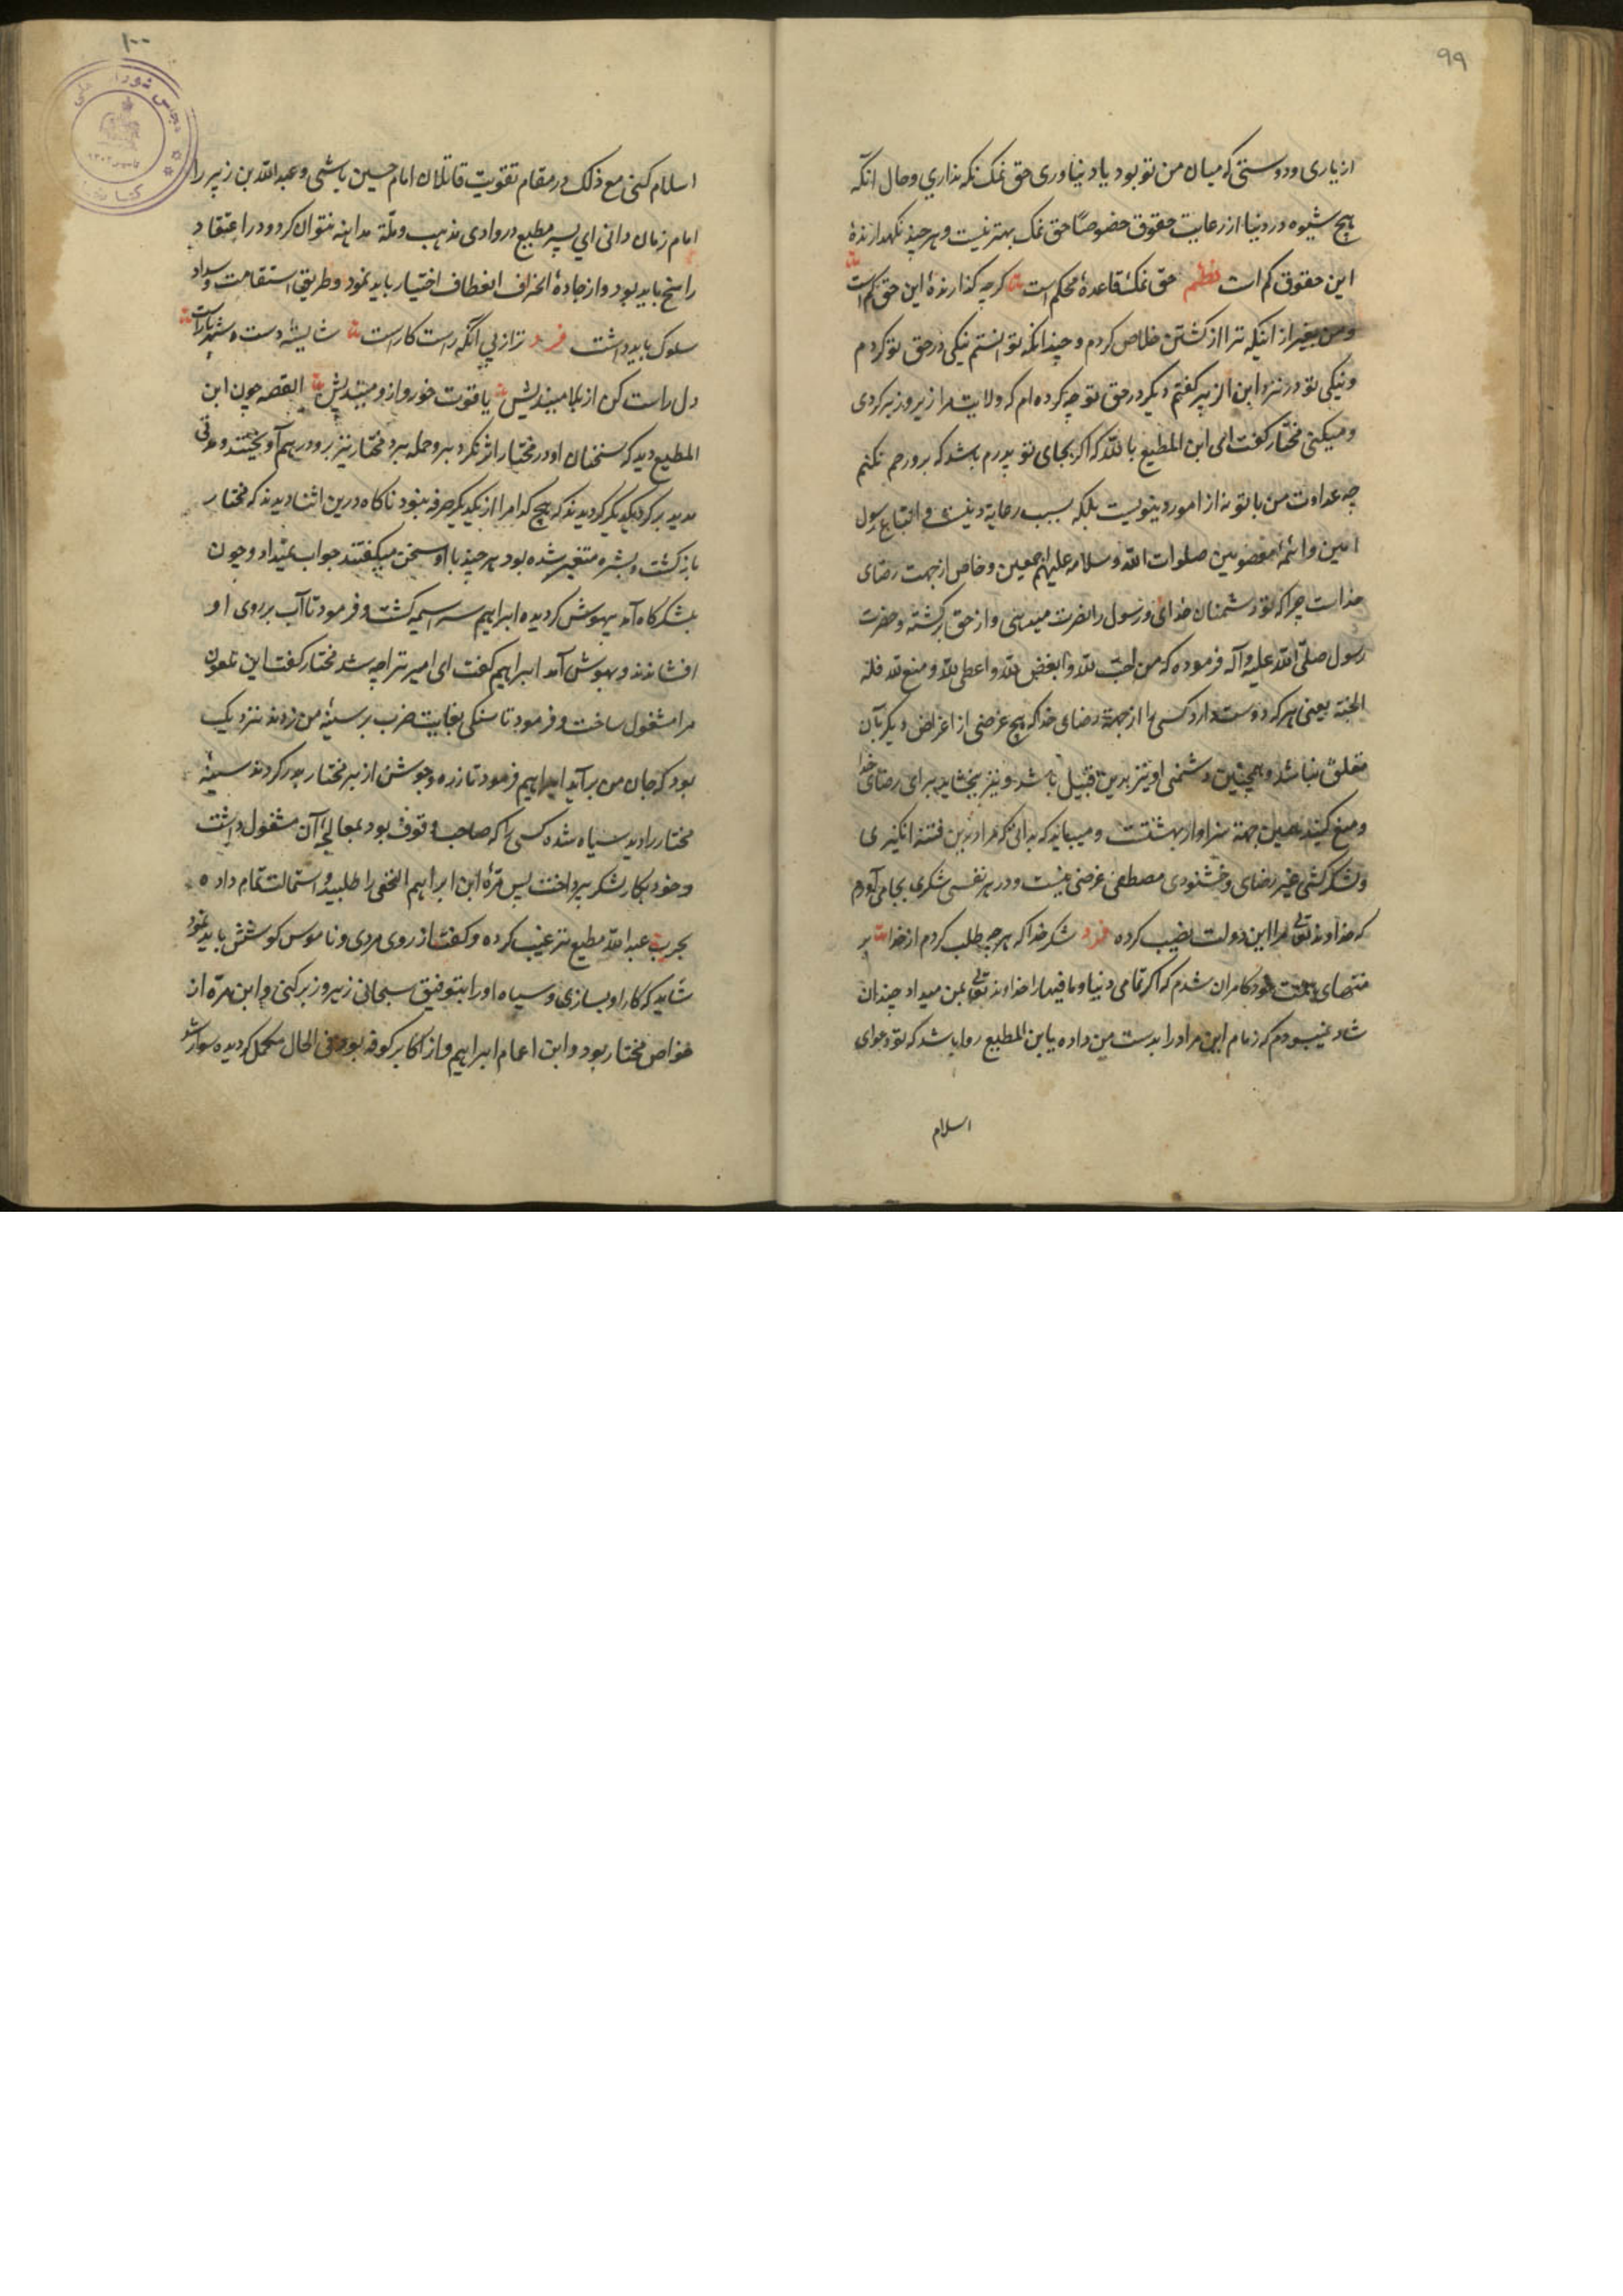 ۹۹
از یاری و دوستی که میان من تو بود یاد نیاوری حق نمک نکه نداری و حال آنکه
هیچ شیوه در دنیا از رعایت حقوق خصوصا حق نمک بهتر نیست و هر چند نکهدارنده
این حقوق کم است نظم حق نمک قاعدهٔ محکم است کرچه کذارندهٔ این حق کم است
و من بغیر از اینکه ترا از کشتن خلاص کردم و چندانکه توانستم نیکی در حق تو کردم
و نیکی تو در نزد ابن الزبیر کفتم دیکر در حق تو چه کرده ام که ولایت مرا زیر و زبر کردی
و میکنی مختار کفت ای ابن المطیع بالله که اکر بجای تو پدرم باشد که برو رحم نکنم
چه عداوت من با تو نه از امور دنیویست بلکه بسبب رعایة دینست و اتباع رسول
امین و ائمهٔ معصومین صلوات الله و سلامه علیهم اجمعین و خاص از جهت رضای
خداست چرا که تو دشمنان خدای و رسول را نصرت میدهی و از حق برکشته و حضرت
رسول صلی الله علیه و آله فرموده که من احب لله و ابغض لله و اعطی لله و منع لله فله
الجنة یعنی هر که دوست دارد کسی را از جهة رضای خدا که هیچ غرضی از اغراض دیکر بآن
متعلق نباشد و همچنین دشمنی او نیز بدین قبیل باشد و نیز بخشاید برای رضای خدا
و منع کند همین جهة سزاوار بهشتست و میباید که بدانی که مراد بدین فتنه انکیزی
و لشکر کشی غیر رضای و خشنودی مصطفی غرضی نیست و در هر نفسی شکری بجا می آورم
که خداوند تعالی مرا این دولت نصیب کرده فرد شکر خدا که هر چه طلب کردم از خدا بر
منتهای همت خود کامران شدم که اکر تمامی دنیا و ما فیها را خداوند تعالی بمن میداد چندان
شاد نمیبودم که زمام این مراد را بدست من داده یا بن المطیع روا باشد که تو دعوای
اسلام
۱۰۰
اسلام کنی مع ذلک در مقام تقویت قاتلان امام حسین باشی و عبدالله بن زبیر را
امام زمان دانی ای پسر مطیع در وادی مذهب و ملة مداهنه نتوان کرد و در اعتقاد
راسخ باید بود و از جادهٔ انحراف انعطاف اختیار باید نمود و طریق استقامت و سداد
سلوک باید داشت فرد ترا از پی آنکه راست کار است شایسته دست شهریار است
دل راست کن از بلا میندیش یاقوت خور و از و میندیش القصه چون ابن
المطیع دید که سخنان او در مختار اثر نکرد برو حمله برد مختار نیز برو در هم آویختند و مدتی
مدید بر کرد یکدیکر کردیدند که هیچ کدام را از یکدیکر صرفه نبود ناکاه درین اثنا دیدند که مختار
بازکشت و بشره متغیر شده بود هر چند با او سخن میکفتند جواب نمیداد و چون
بلشکرکاه آمد بیهوش کردیده ابراهیم سراسیمه کشت و فرمود تا آب بر روی او
افشاندند و بهوش آمد ابراهیم کفت ای امیر ترا چه شد مختار کفت این ملعون
مرا مشغول ساخت و فرمود تا سنکی بغایت ضرب بر سینهٔ من زدند نزدیک
بود که جان من برآید ابراهیم فرمود تا زره و جوشن از بر مختار بدر کردند سینهٔ
مختار را دید سیاه شده کسی را که صاحب وقوف بود بمعالجهٔ آن مشغول داشت
و خود بکار لشکر پرداخت پس مرّة ابن ابراهیم النخعی را طلبید و استمالت تمام داده
بحرب عبدالله مطیع ترغیب کرده و کفت از روی مردی و ناموس کوشش باید نمود
شاید که کار او بسازی و سپاه او را بتوفیق سبحانی زیر و زبر کنی و ابن مرّه از
خواص مختار بود و ابن اعمام ابراهیم و از اکابر کوفه بود فی الحال مکمل کردیده سوار شد